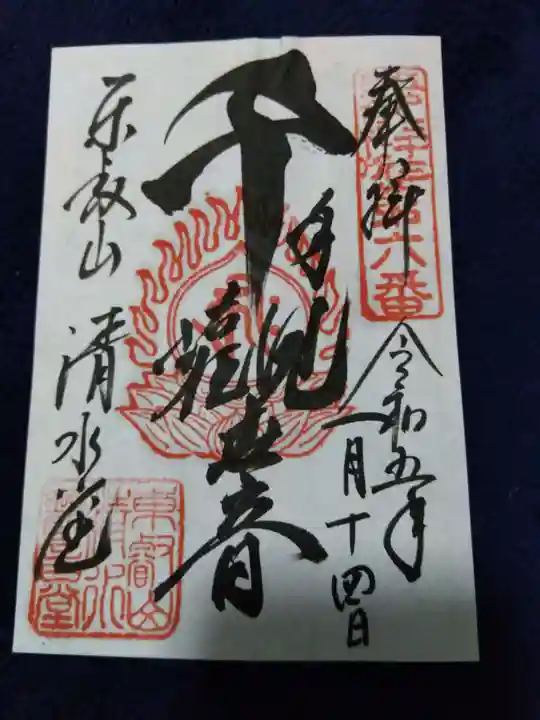 奉拝
第六番
令和五年
一月十四日
千手観世音
東叡山
清水堂
東叡山
清水
堂